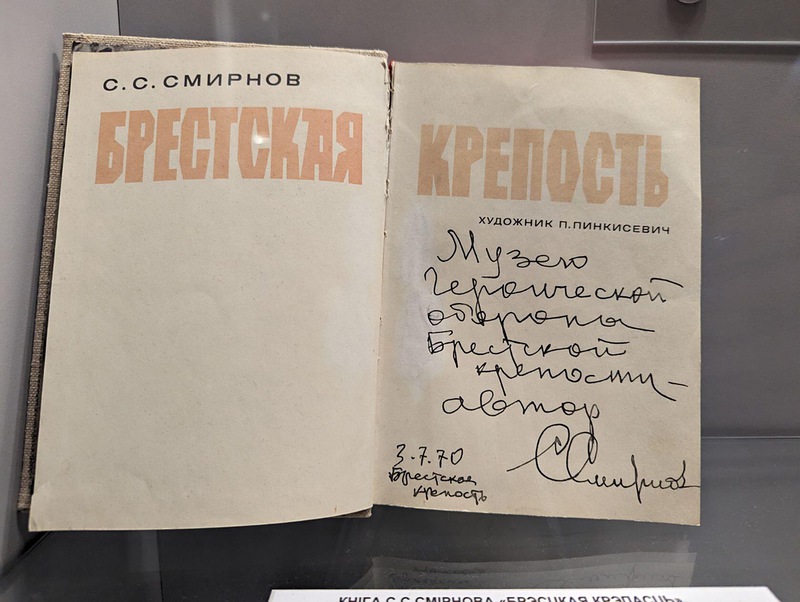 С. С. СМИРНОВ
БРЕСТСКАЯ
КРЕПОСТЬ
ХУДОЖНИК П. ПИНКИСЕВИЧ
Музею
Героической
обороны
Брестской
крепости –
автор
ССмирнов
3.7.70
Брестская
крепость
КНІГА С.С.СМІРНОВА «БРЭСЦКАЯ КРЭПАСЦЬ»